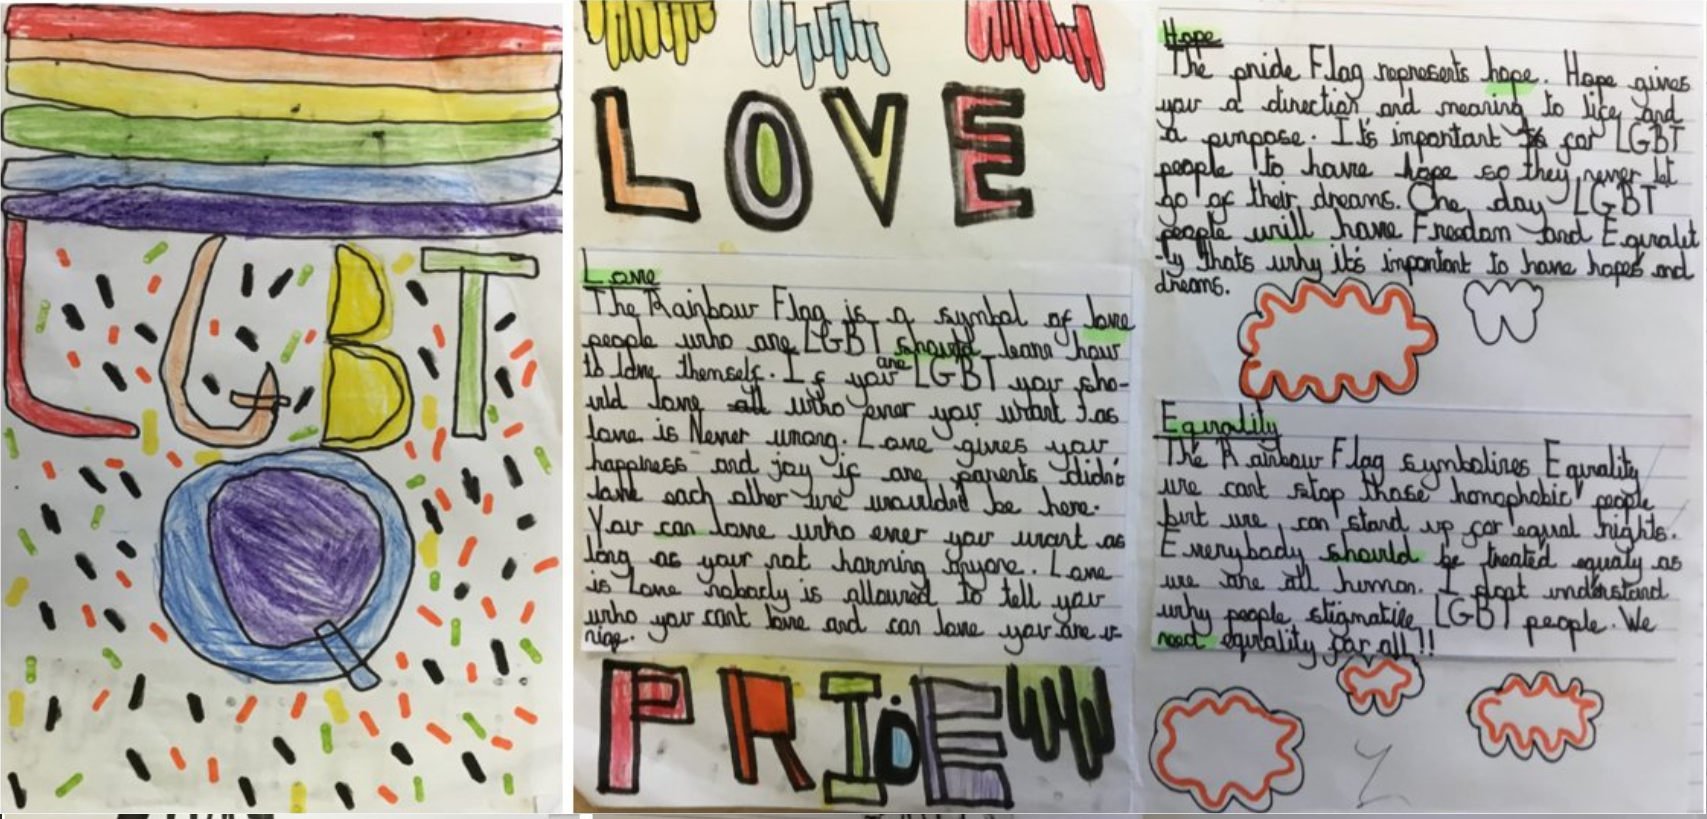 LGBT
Q
LOVE
Love
The Rainbow Flag is a symbol of love
people who are LGBT should learn how
to love themself. If you are LGBT you sho-
uld love all who ever you want to as
love is Never wrong. Love gives you
happiness and joy if are parents didn't
love each other we wouldnt be here.
You can love who ever you want as
long as your not harming anyone. Love
is Love nobody is allowed to tell you
who you cant love and can love you are
PRIDE
Hope
The pride Flag represents hope. Hope gives
you a direction and meaning to life and
a purpose. It's important to for LGBT
people to have hope so they never let
go of their dreams. One day LGBT
people will have Freedom and Equalit
-ly thats why it's important to have hopes and
dreams.
Equality
The Rainbow Flag symbolises Equality
we cant stop those homophobic people
but we can stand up for equal rights.
Everybody should be treated equaly as
we are all human. I dont understand
why people stigmatise LGBT people. We
need equality for all!!!